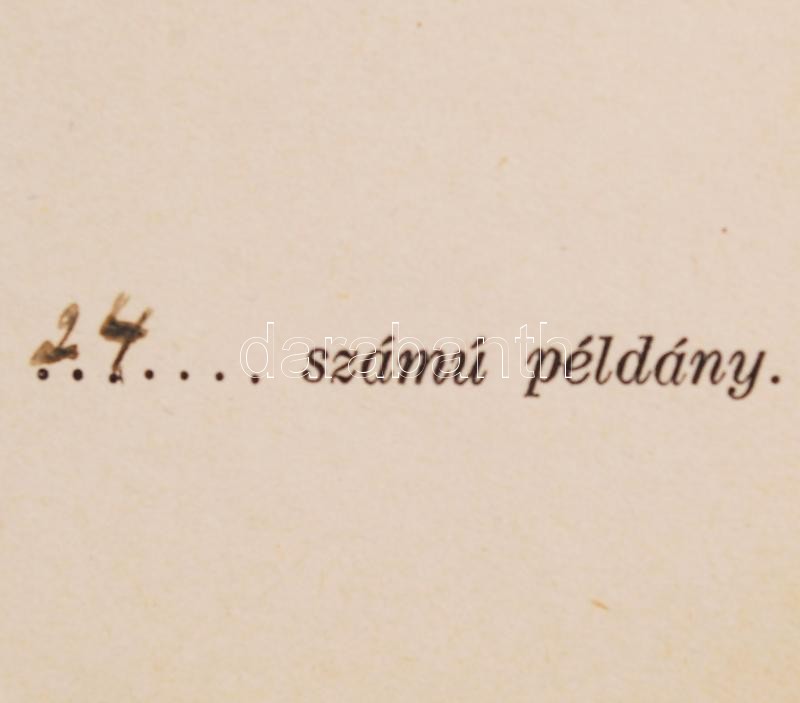 24....... számú példány.
darabanth